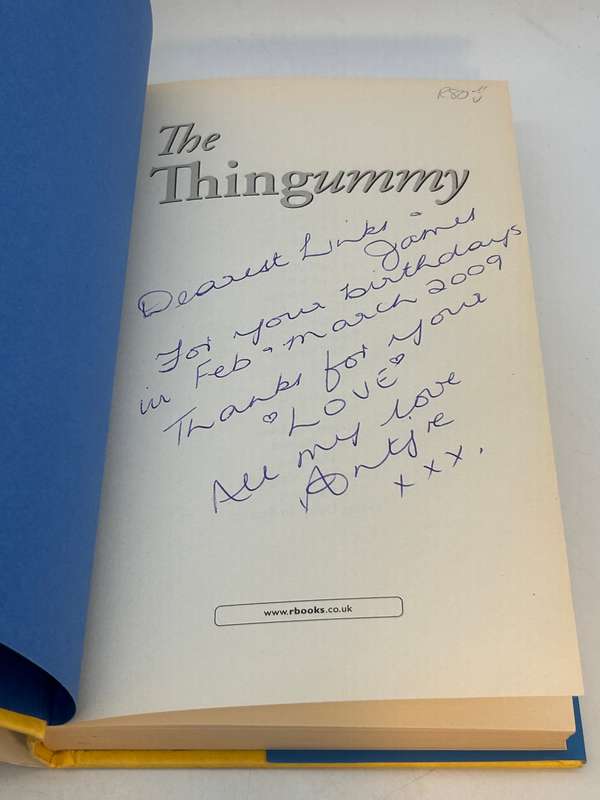 R80-
The
Thingummy
Dearest Links &
James
For your birthdays
in Feb & March 2009
Thanks for your
LOVE
All my love
Antjie
x x x.
www.rbooks.co.uk